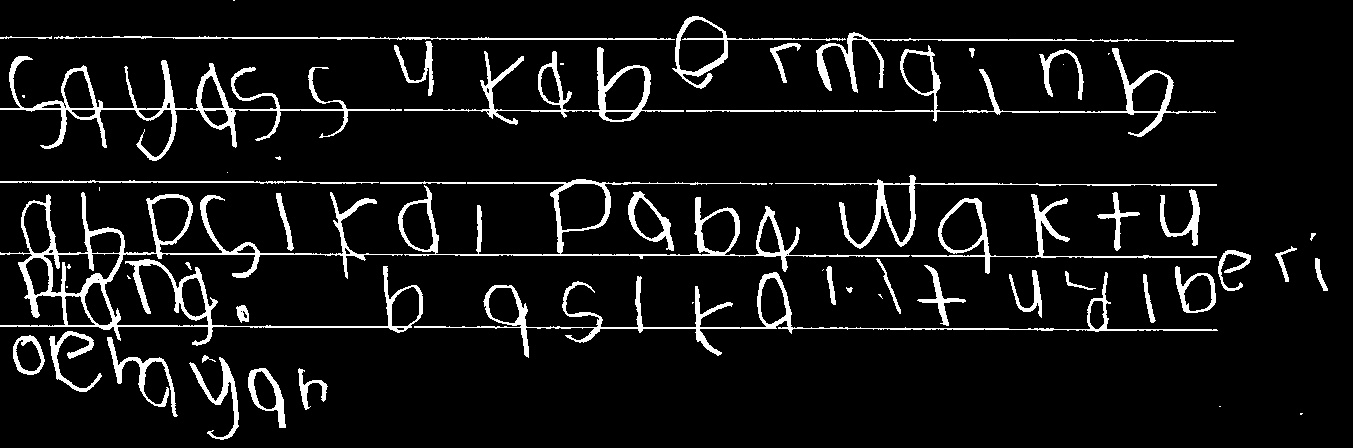 sayass ukabermainb
abpsikdi Paba Waktu
Ptang. basikalitudiberi
oehayan